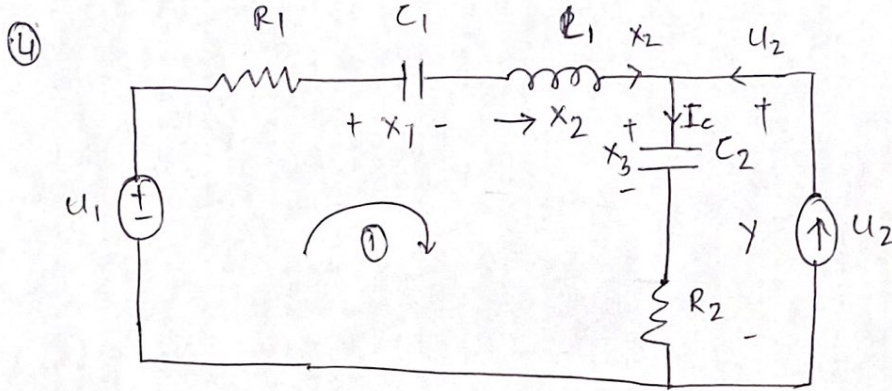 4
R1 C1 L1 x2 u2
+ x1 - → x2 + Ic +
x3 C2
-
u1 + - 1 y ↑ u2
R2
-